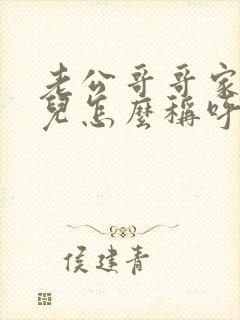 老公哥哥家
兒怎麼稱呼
侯建青